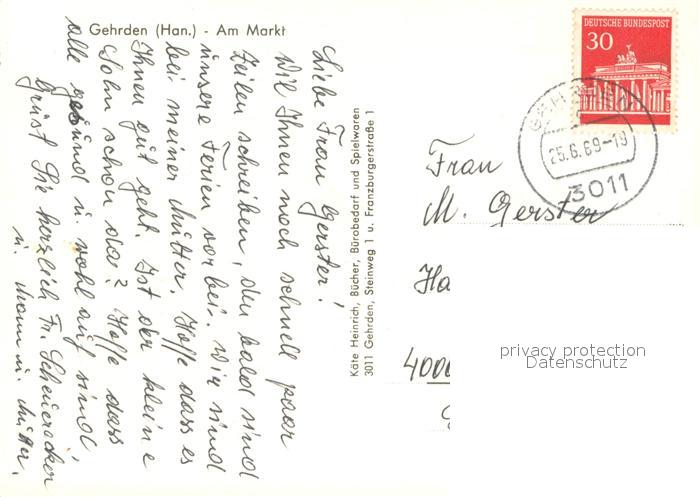 Gehrden (Han.) - Am Markt
Liebe Frau Gerster!
Will Ihnen noch schnell paar
Zeilen schreiben, den bald sind
unsere Ferien vorbei. Wir sind
bei meiner Mutter. Hoffe dass es
Ihnen gut geht. Ist der kleine
Sohn schon da? Hoffe dass
alle gesund u. wohl auf sind!
Grüst Sie herzlich Fr. Scheueracker
u. Mann u. Mutter.
Käte Heinrich, Bücher, Bürobedarf und Spielwaren
3011 Gehrden, Steinweg 1 u. Franzburgerstraße 1
DEUTSCHE BUNDESPOST
30
GEHRDEN
25.6.69-19
3011
Frau
M. Gerster
Ha
4000
privacy protection
Datenschutz